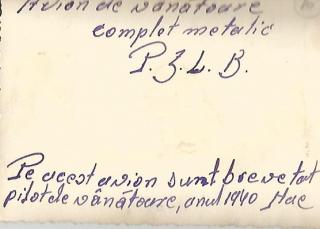 Avion de vânătoare
complet metalic
P.Z.L. B.
Pe acest avion sunt brevetat
pilot de vânătoare, anul 1940